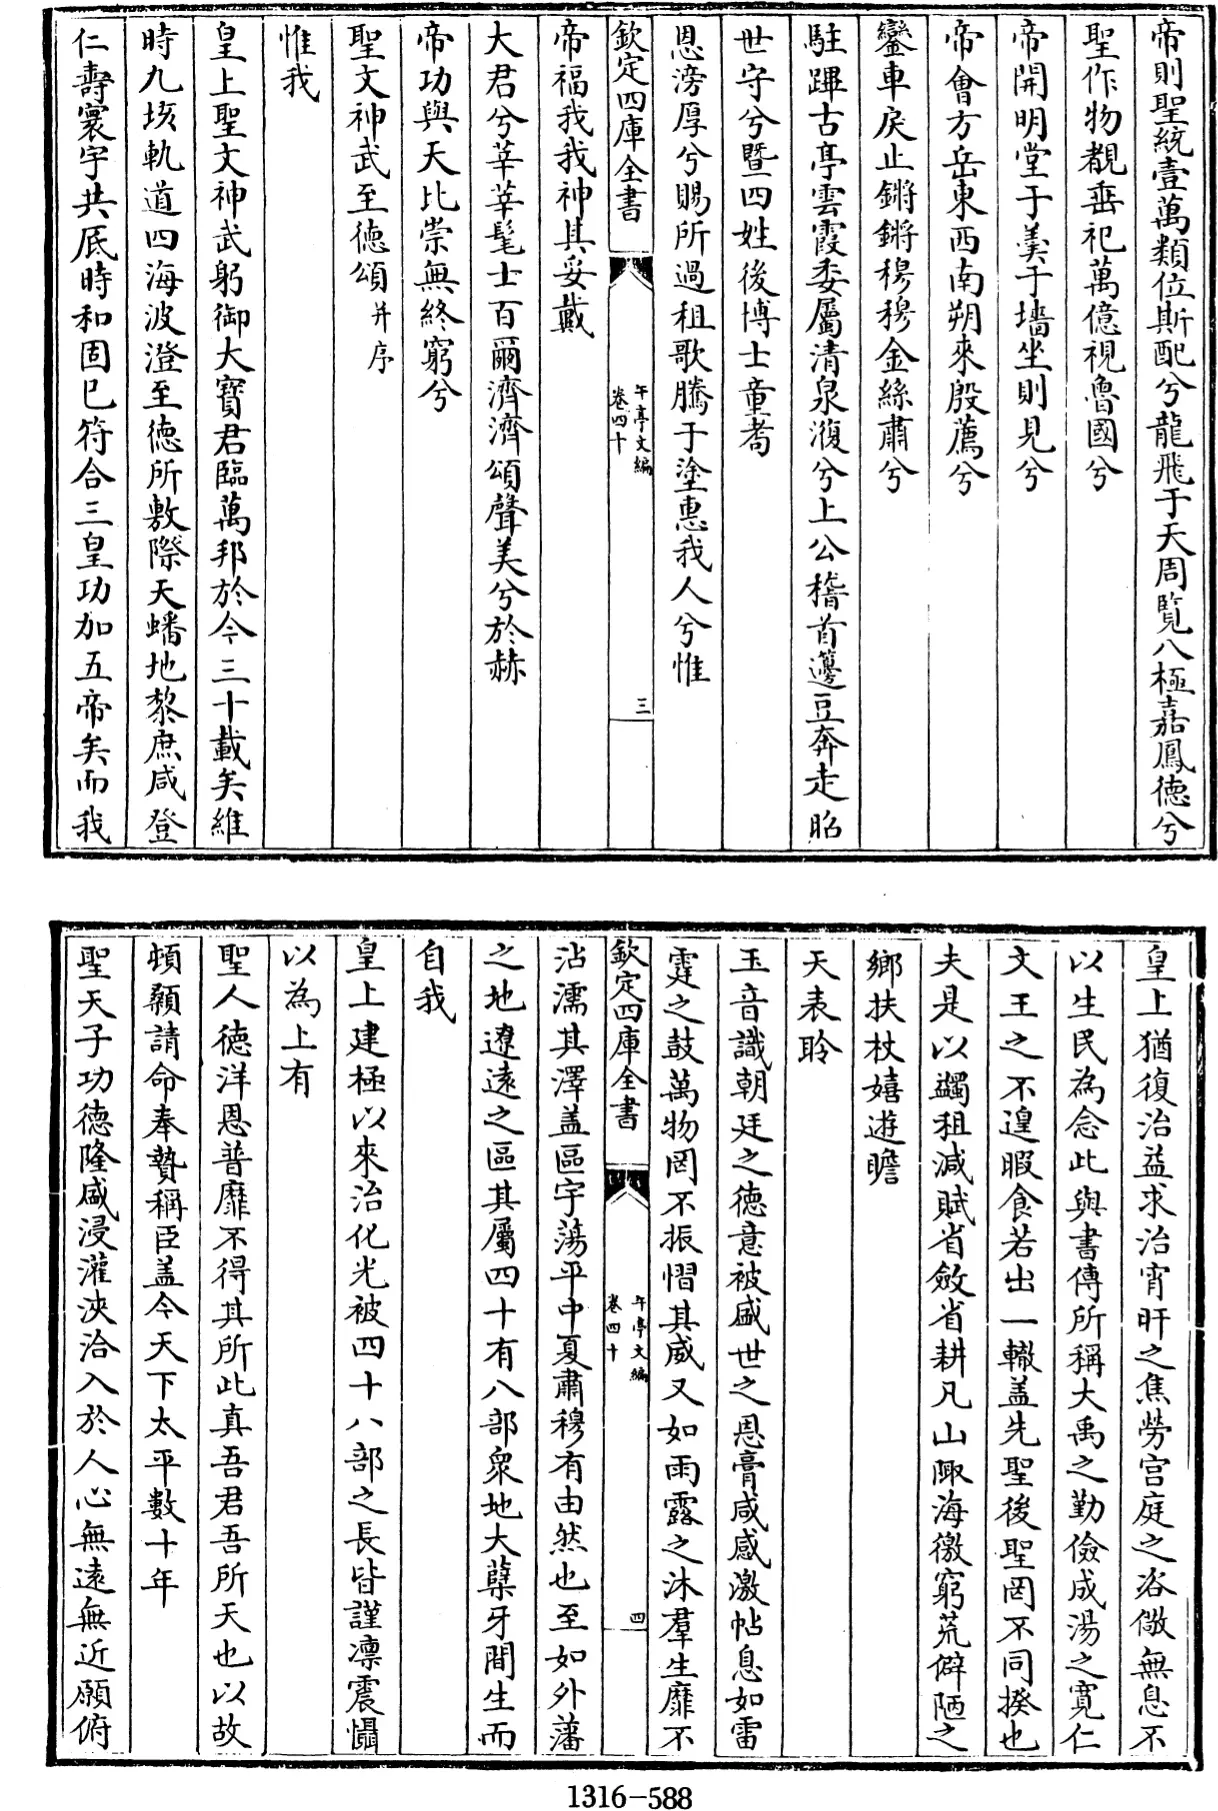 帝則聖統壹萬類位斯配兮龍飛于天周覧八極嘉鳳德兮
聖作物覩垂祀萬億視魯國兮
帝開明堂于羹于墻坐則見兮
帝會方岳東西南朔來殷薦兮
鑾車戾止鏘鏘穆穆金絲肅兮
駐蹕古亭雲霞委屬清泉澓兮上公稽首籩豆奔走昭
世守兮暨四姓後博士童耇
恩滂厚兮賜所過租歌騰于塗惠我人兮惟
欽定四庫全書
午亭文編
卷四十
三
帝福我我神其妥戴
大君兮莘莘髦士百爾濟濟頌聲美兮於赫
帝功與天比崇無終窮兮
聖文神武至德頌并序
惟我
皇上聖文神武躬御大寳君臨萬邦於今三十載矣維
時九垓軌道四海波澄至德所敷際天蟠地黎庶咸登
仁壽寰宇共底時和固已符合三皇功加五帝矣而我
皇上猶復治益求治宵旰之焦勞宫庭之咨儆無息不
以生民為念此與書傳所稱大禹之勤儉成湯之寛仁
文王之不遑暇食若出一轍盖先聖後聖罔不同揆也
夫是以蠲租減賦省斂省耕凡山陬海徼窮荒僻陋之
鄉扶杖嬉遊瞻
天表聆
玉音識朝廷之德意被盛世之恩膏咸感激帖息如雷
霆之鼓萬物罔不振慴其威又如雨露之沐羣生靡不
欽定四庫全書
午亭文編
卷四十
四
沾濡其澤盖區宇蕩平中夏肅穆有由然也至如外藩
之地遼遠之區其屬四十有八部衆地大櫱牙間生而
自我
皇上建極以來治化光被四十八部之長皆謹凛震懾
以為上有
聖人德洋恩普靡不得其所此真吾君吾所天也以故
頓顙請命奉贄稱臣盖今天下太平數十年
聖天子功德隆盛浸灌浹洽入於人心無遠無近願俯
1316-588